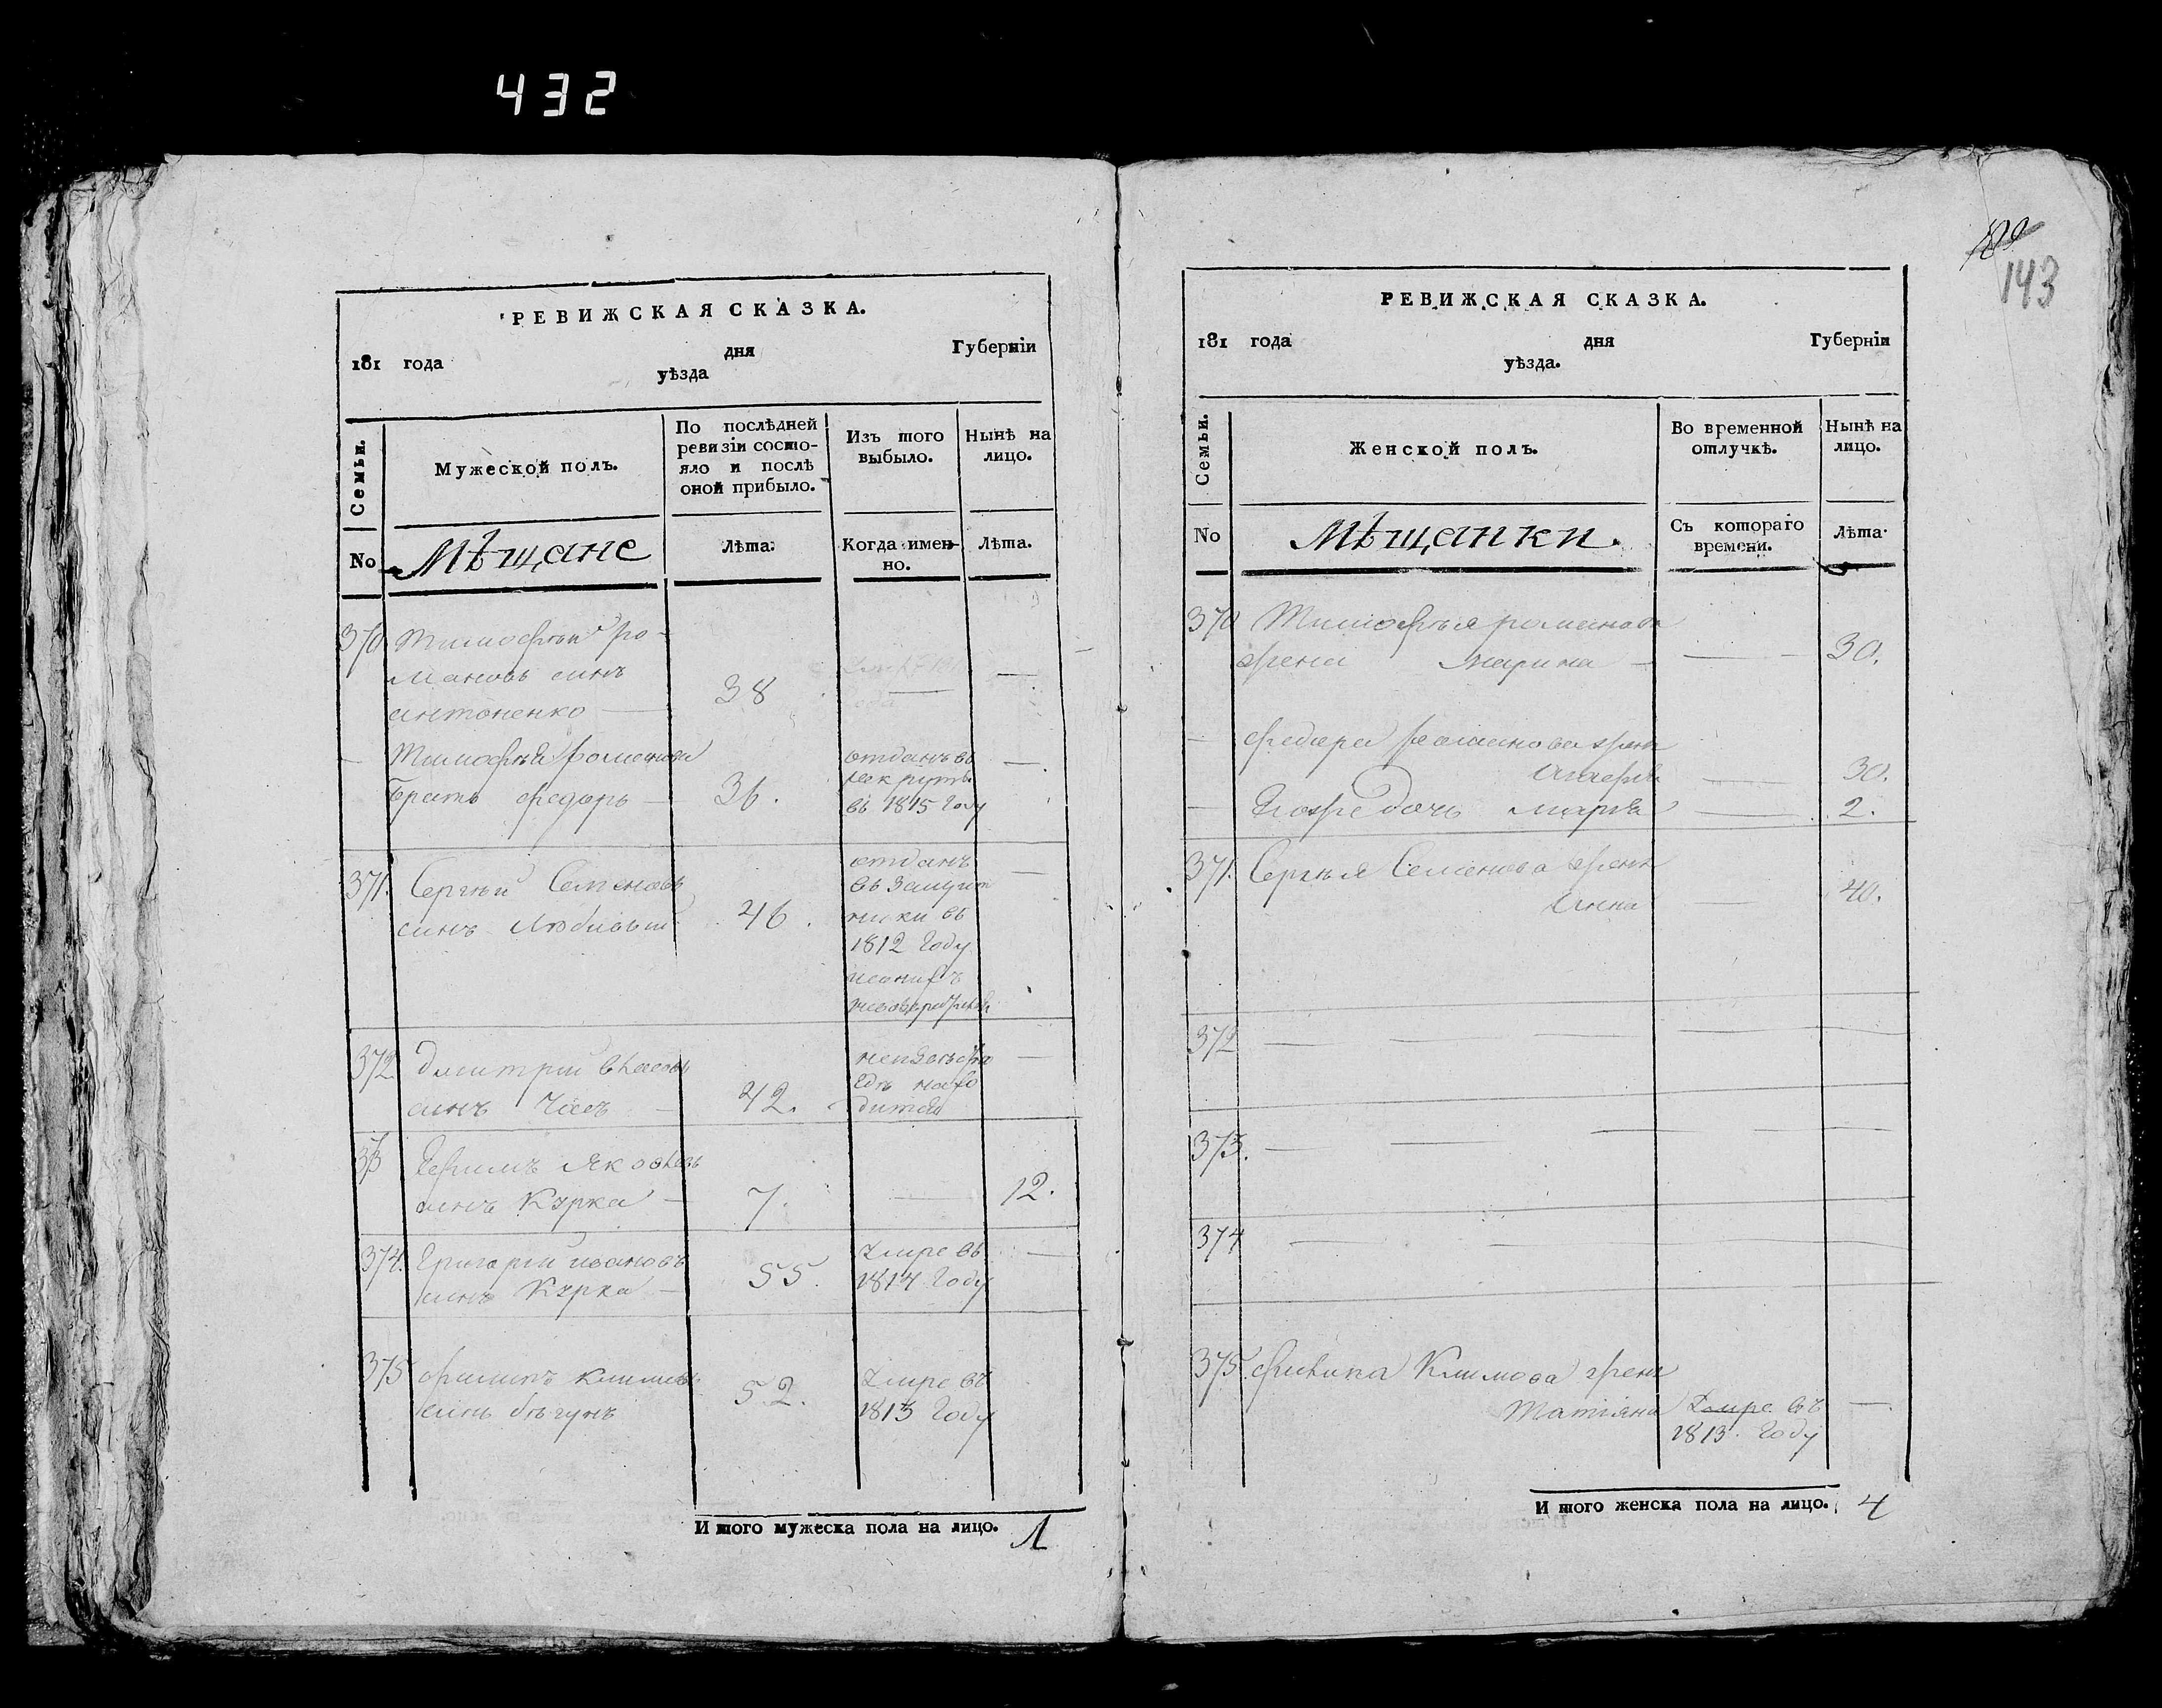 432
РЕВИЖСКАЯ СКАЗКА.
181 года дня Губерніи
уѣзда
Семьи.
Мужеской полъ.
По послѣдней
ревизіи состо-
яло и послѣ
оной прибыло.
Изъ того
выбыло.
Нынѣ на
лицо.
No
Мѣщане
Лѣта.
Когда имен-
но.
Лѣта.
370 Тимофѣй Ро-
мановъ синъ
антоненко — 38 — —
— Тимофѣя романова
братъ федоръ — 36.
отданъ въ
рекруты
въ 1815 Году
—
371. Сергѣй Семеновъ
синъ 46.
отданъ
въ
ники въ
1812 Году
—
372. Дмитрій
синъ 42.
где нахо
дится
—
373 Яковлевъ
синъ Кърка — 7. — 12.
374. Григорій ивановъ
синъ Кърка — 55.
умре въ
1814 Году
—
375 филипъ климовъ
синъ бѣгунъ 52.
умре въ
1813 Году
И того мужеска пола на лицо. 1
189
143
РЕВИЖСКАЯ СКАЗКА.
181 года дня Губерніи
уѣзда.
Семьи.
Женской полъ.
Во временной
отлучкѣ.
Нынѣ на
лицо.
No
Мѣщанки.
Съ котораго
времени.
Лѣта.
370 Тимофѣя романова
жена Марина — — 30.
— федора романова жена
— 30.
— Егоже дочь марѳа — 2.
371. Сергѣя Семенова жена
Анна — 40.
372 — — — —
373. — — — —
374 — — —
375. филипа Климова жена
Татіяна умре въ —
1813. Году
И того женска пола на лицо. 4